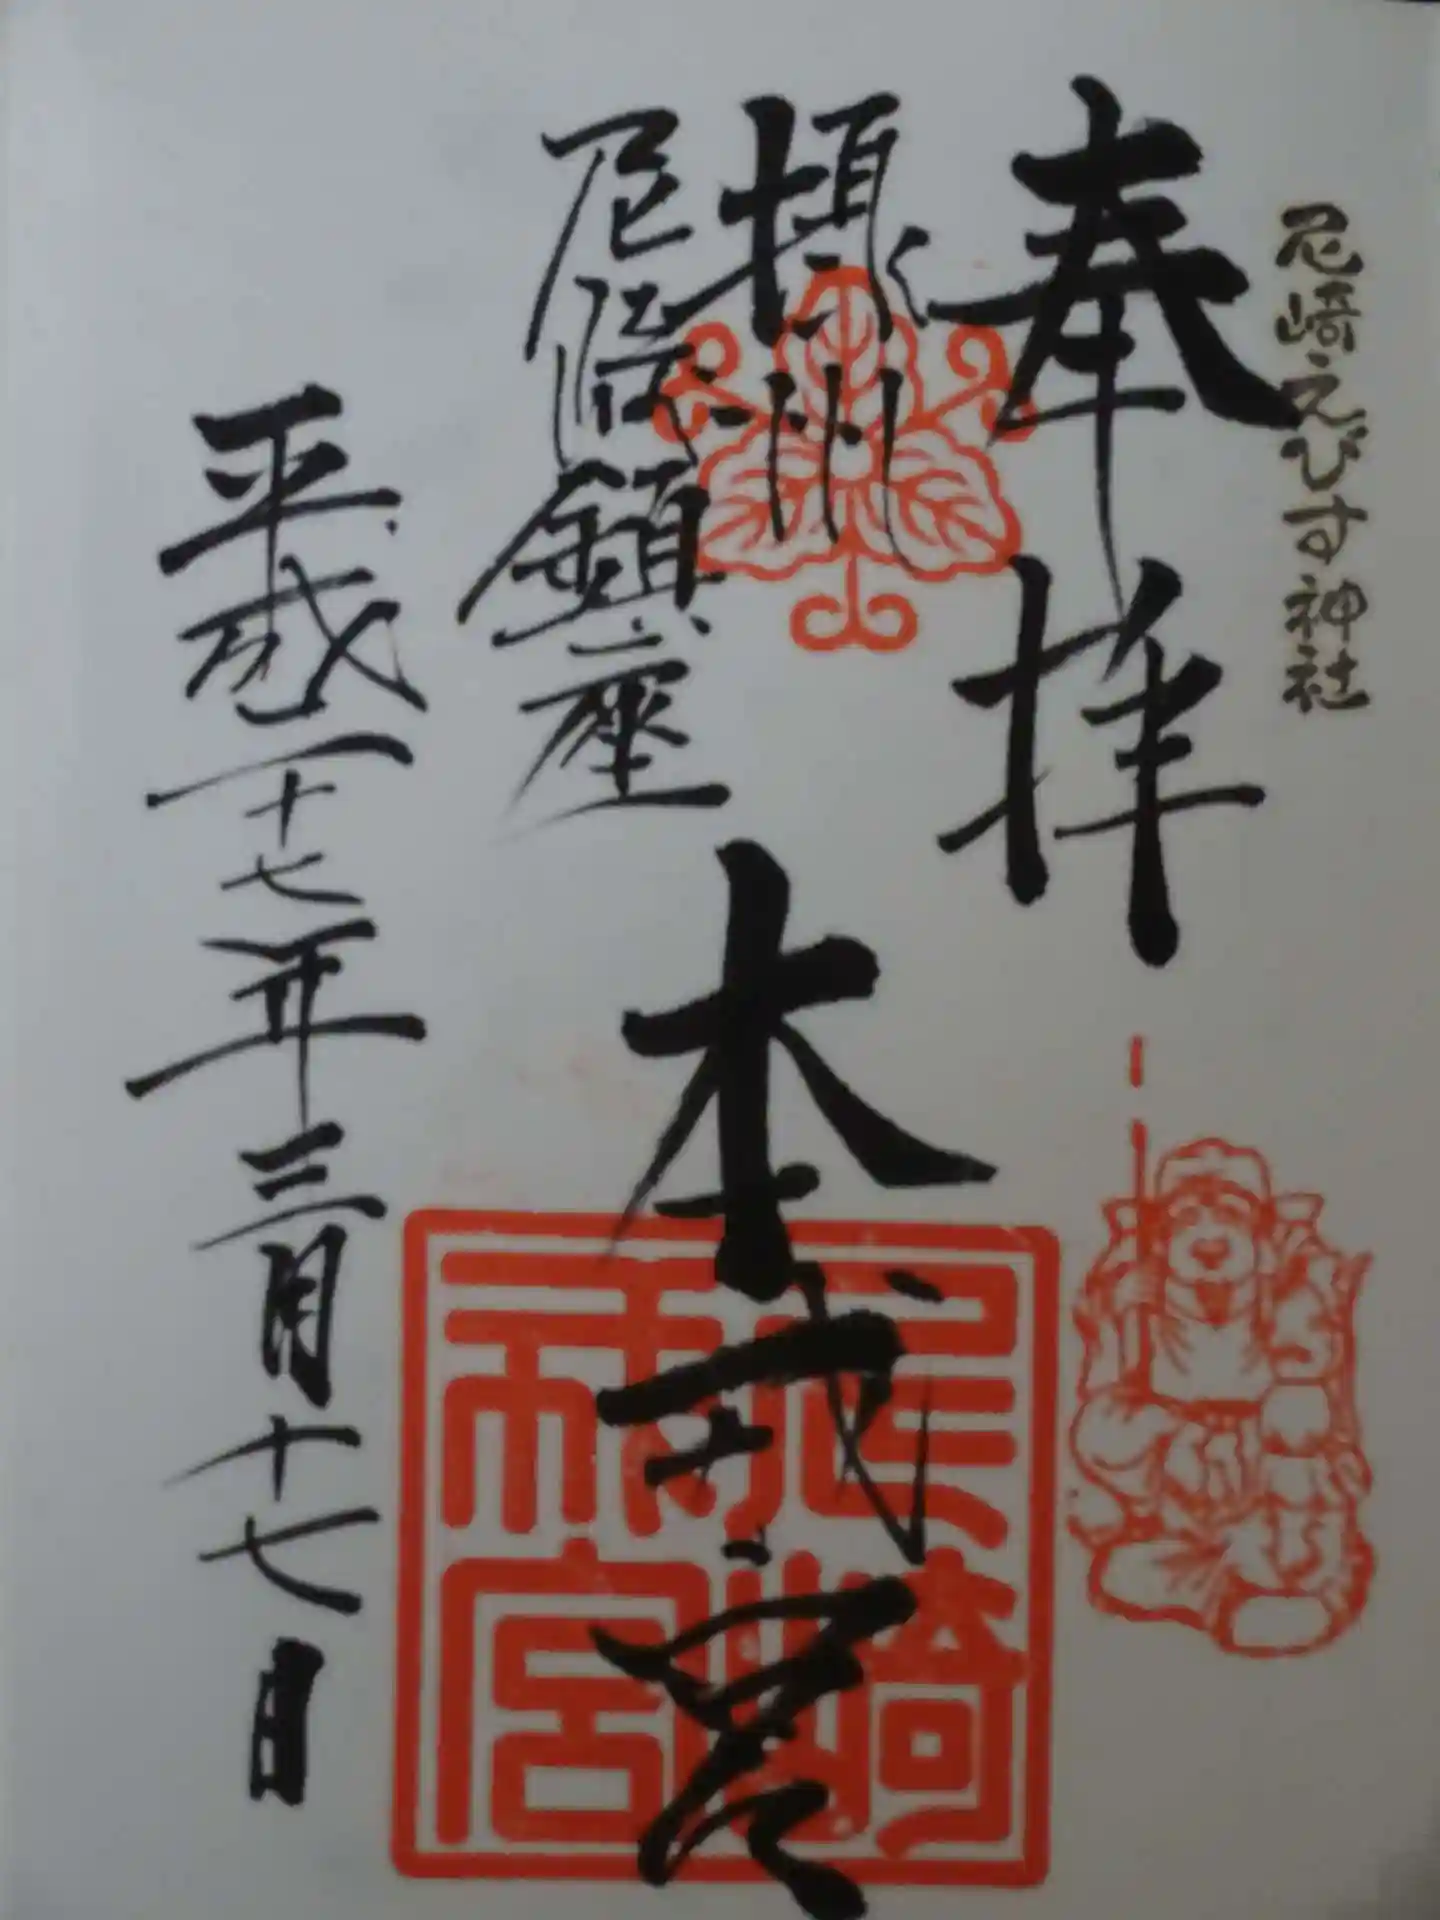 尼崎えびす神社
奉拝
摂州
尼崎鎮座
本戎宮
平成二十七年三月十七日